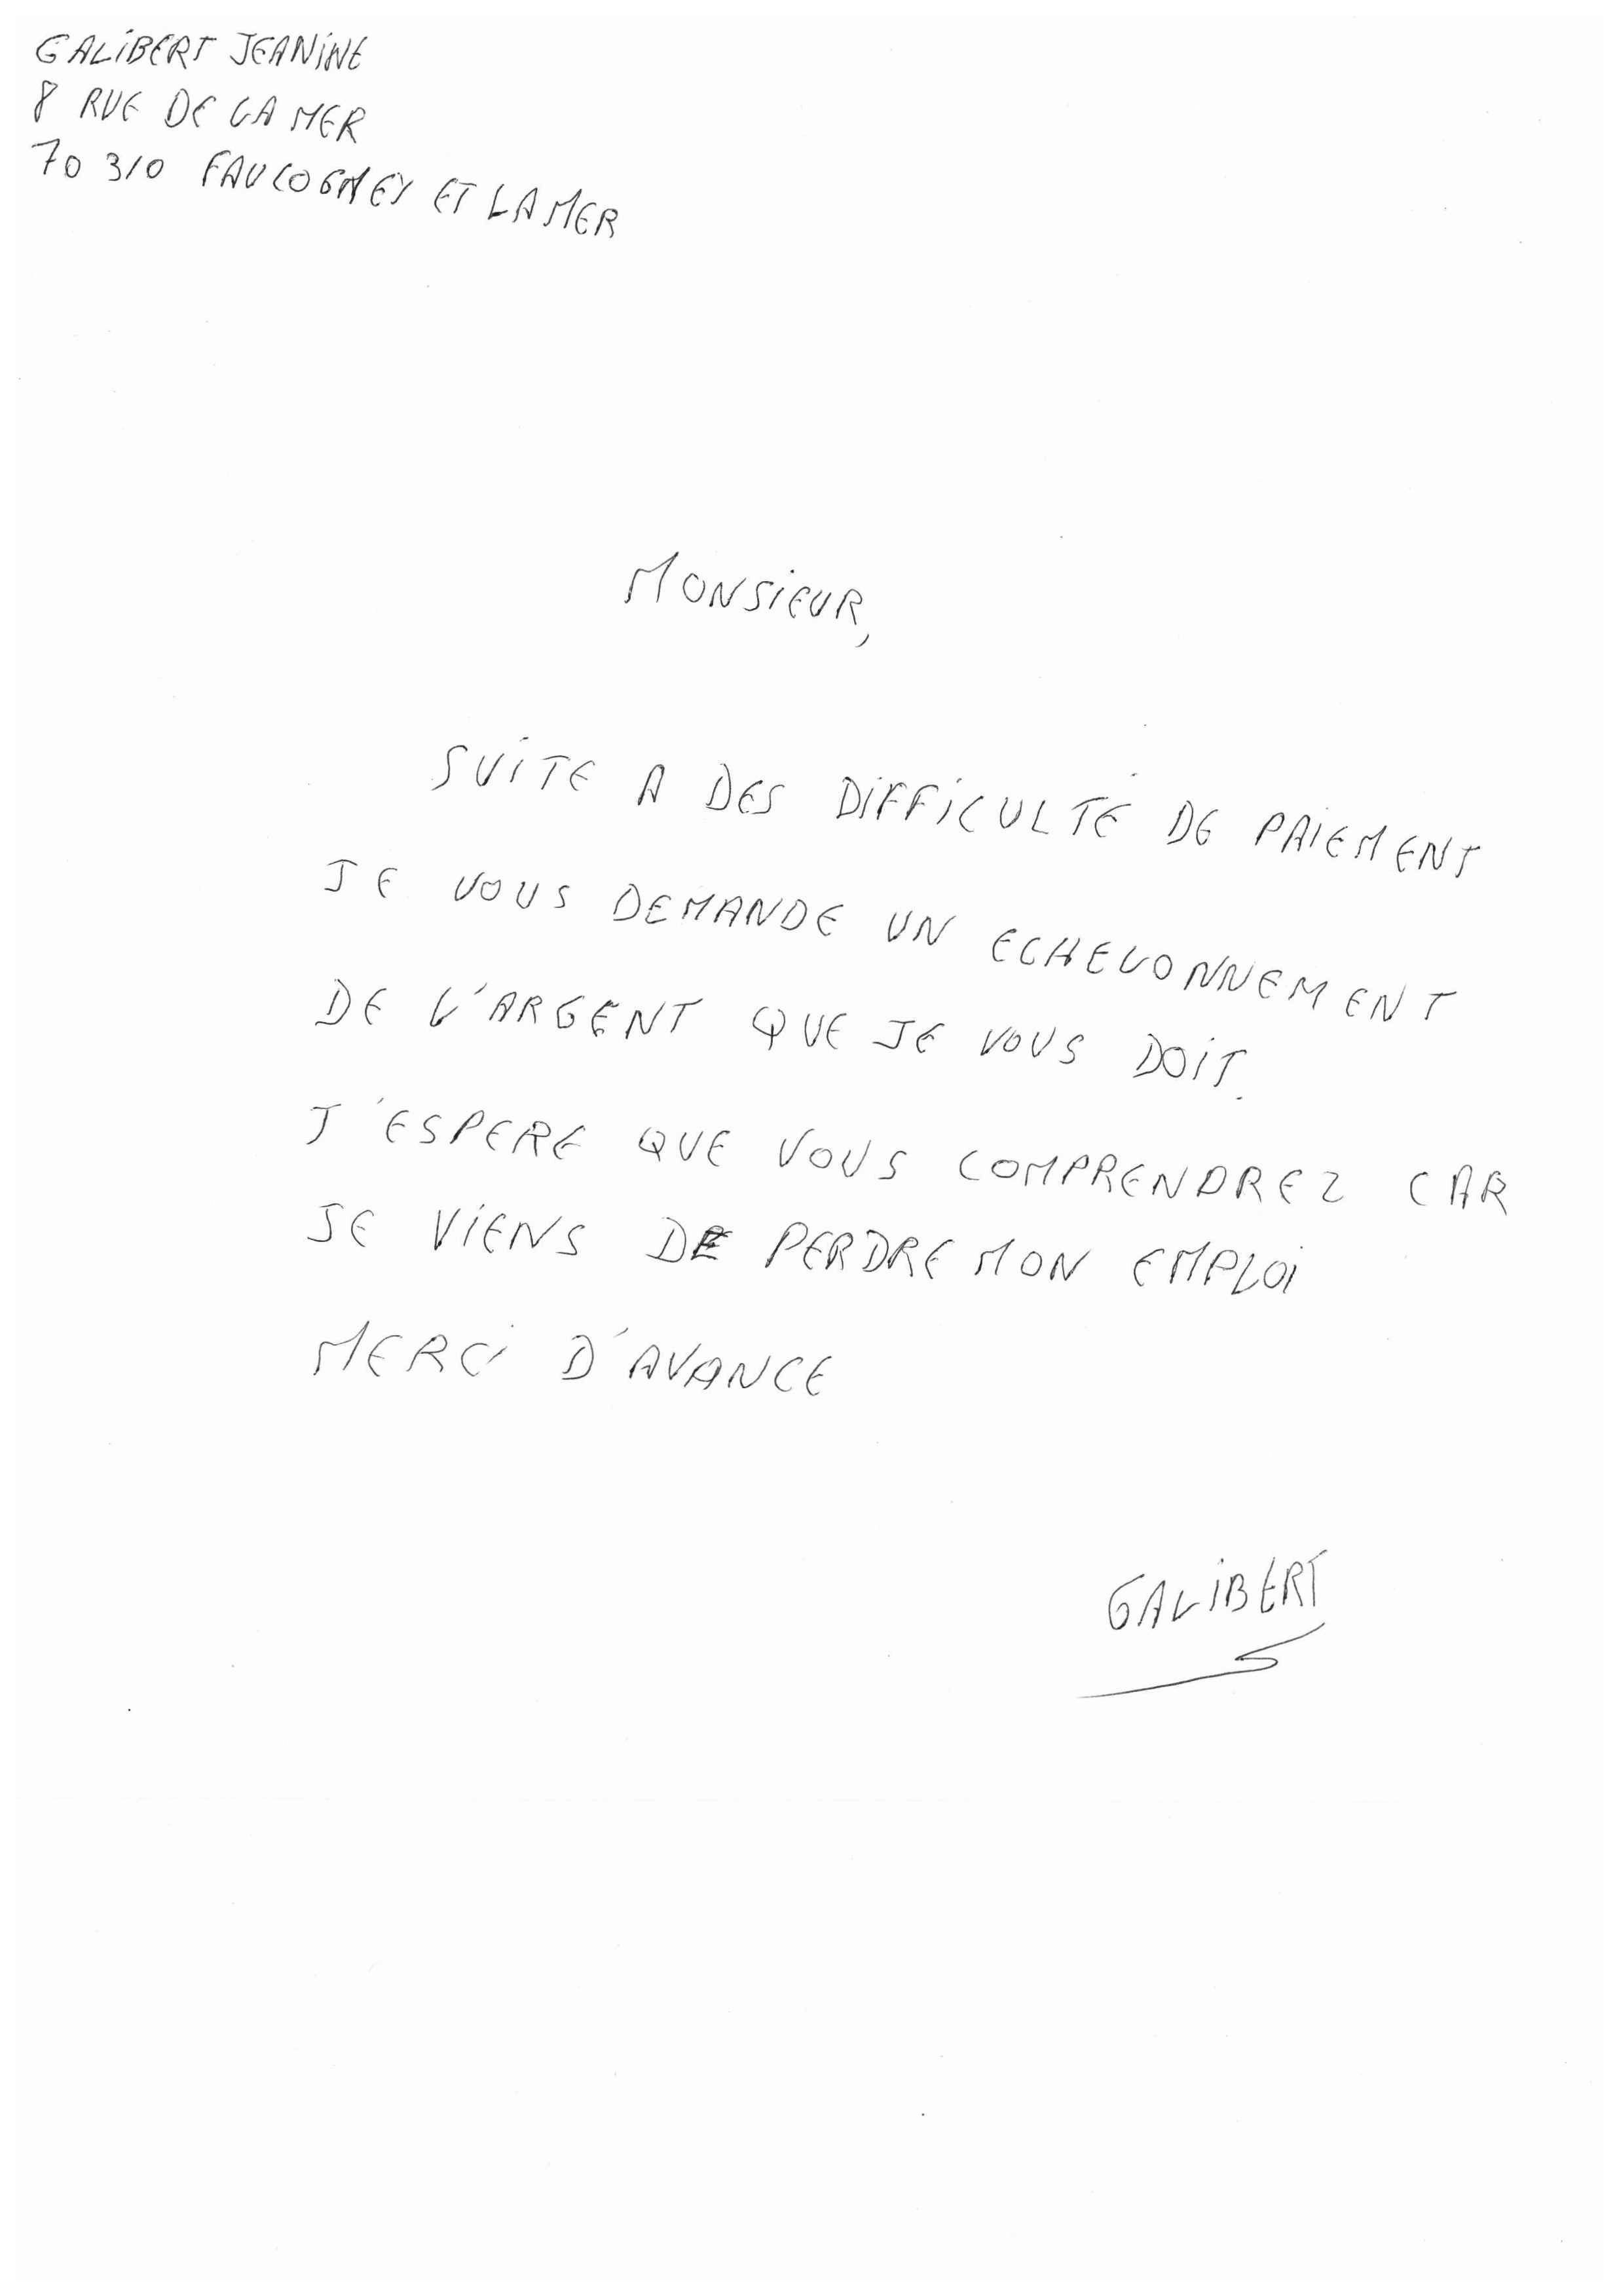 GALIBERT JEANINE
8 RUE DE LA MER
70 310 FAUCOGNEY ET LA MER
MONSIEUR,
SUITE A DES DIFFICULTÉ DE PAIEMENT
JE VOUS DEMANDE UN ECHELONNEMENT
DE L'ARGENT QUE JE VOUS DOIT.
J'ESPERE QUE VOUS COMPRENDREZ CAR
JE VIENS DE PERDRE MON EMPLOI
MERCI D'AVANCE
GALIBERT